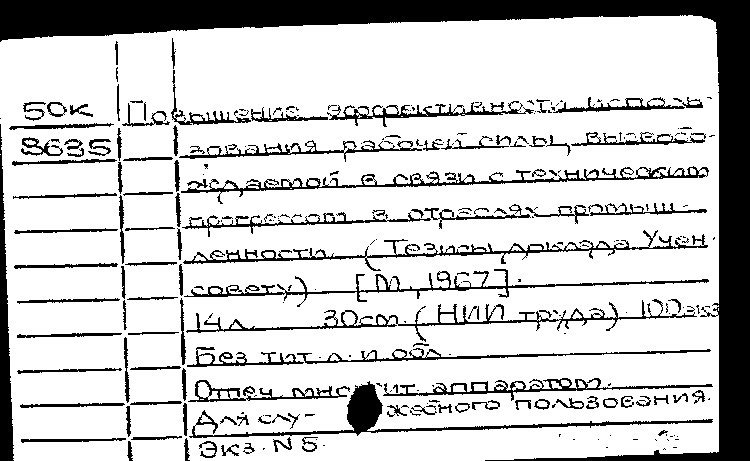 50К Повышение эффективности исполь-
8635 зования рабочей силы, высвобо-
ждаемой в связи с техническим
прогрессом в отраслях промыш-
ленности. (Тезисы доклада Учен.
совету) [М., 1967].
14л. 30см. (НИИ труда) 100экз
Без тит. л. и обл.
Отпеч. множит. аппаратом.
Для слу- жебного пользования.
Экз. N 5.